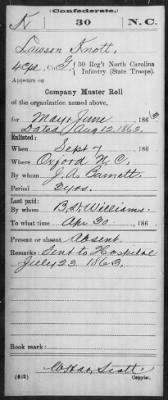 Confederate.
K 30 N.C.
Lawson Knott
Co. G, 30 Reg't North Carolina
Infantry (State Troops).
Appears on
Company Muster Roll
of the organization named above,
for May & June 186
Dated Aug 12, 1863.
Enlisted:
When Sept 7 186
Where Oxford N.C.
By whom J.A. Barnett
Period 2 yrs.
Last paid:
By whom B.D. Williams.
To what time Apr 30 186
Present or absent Absent
Remarks: Sent to Hospital
July 23 1863.
Book mark:
(642) Copyist.